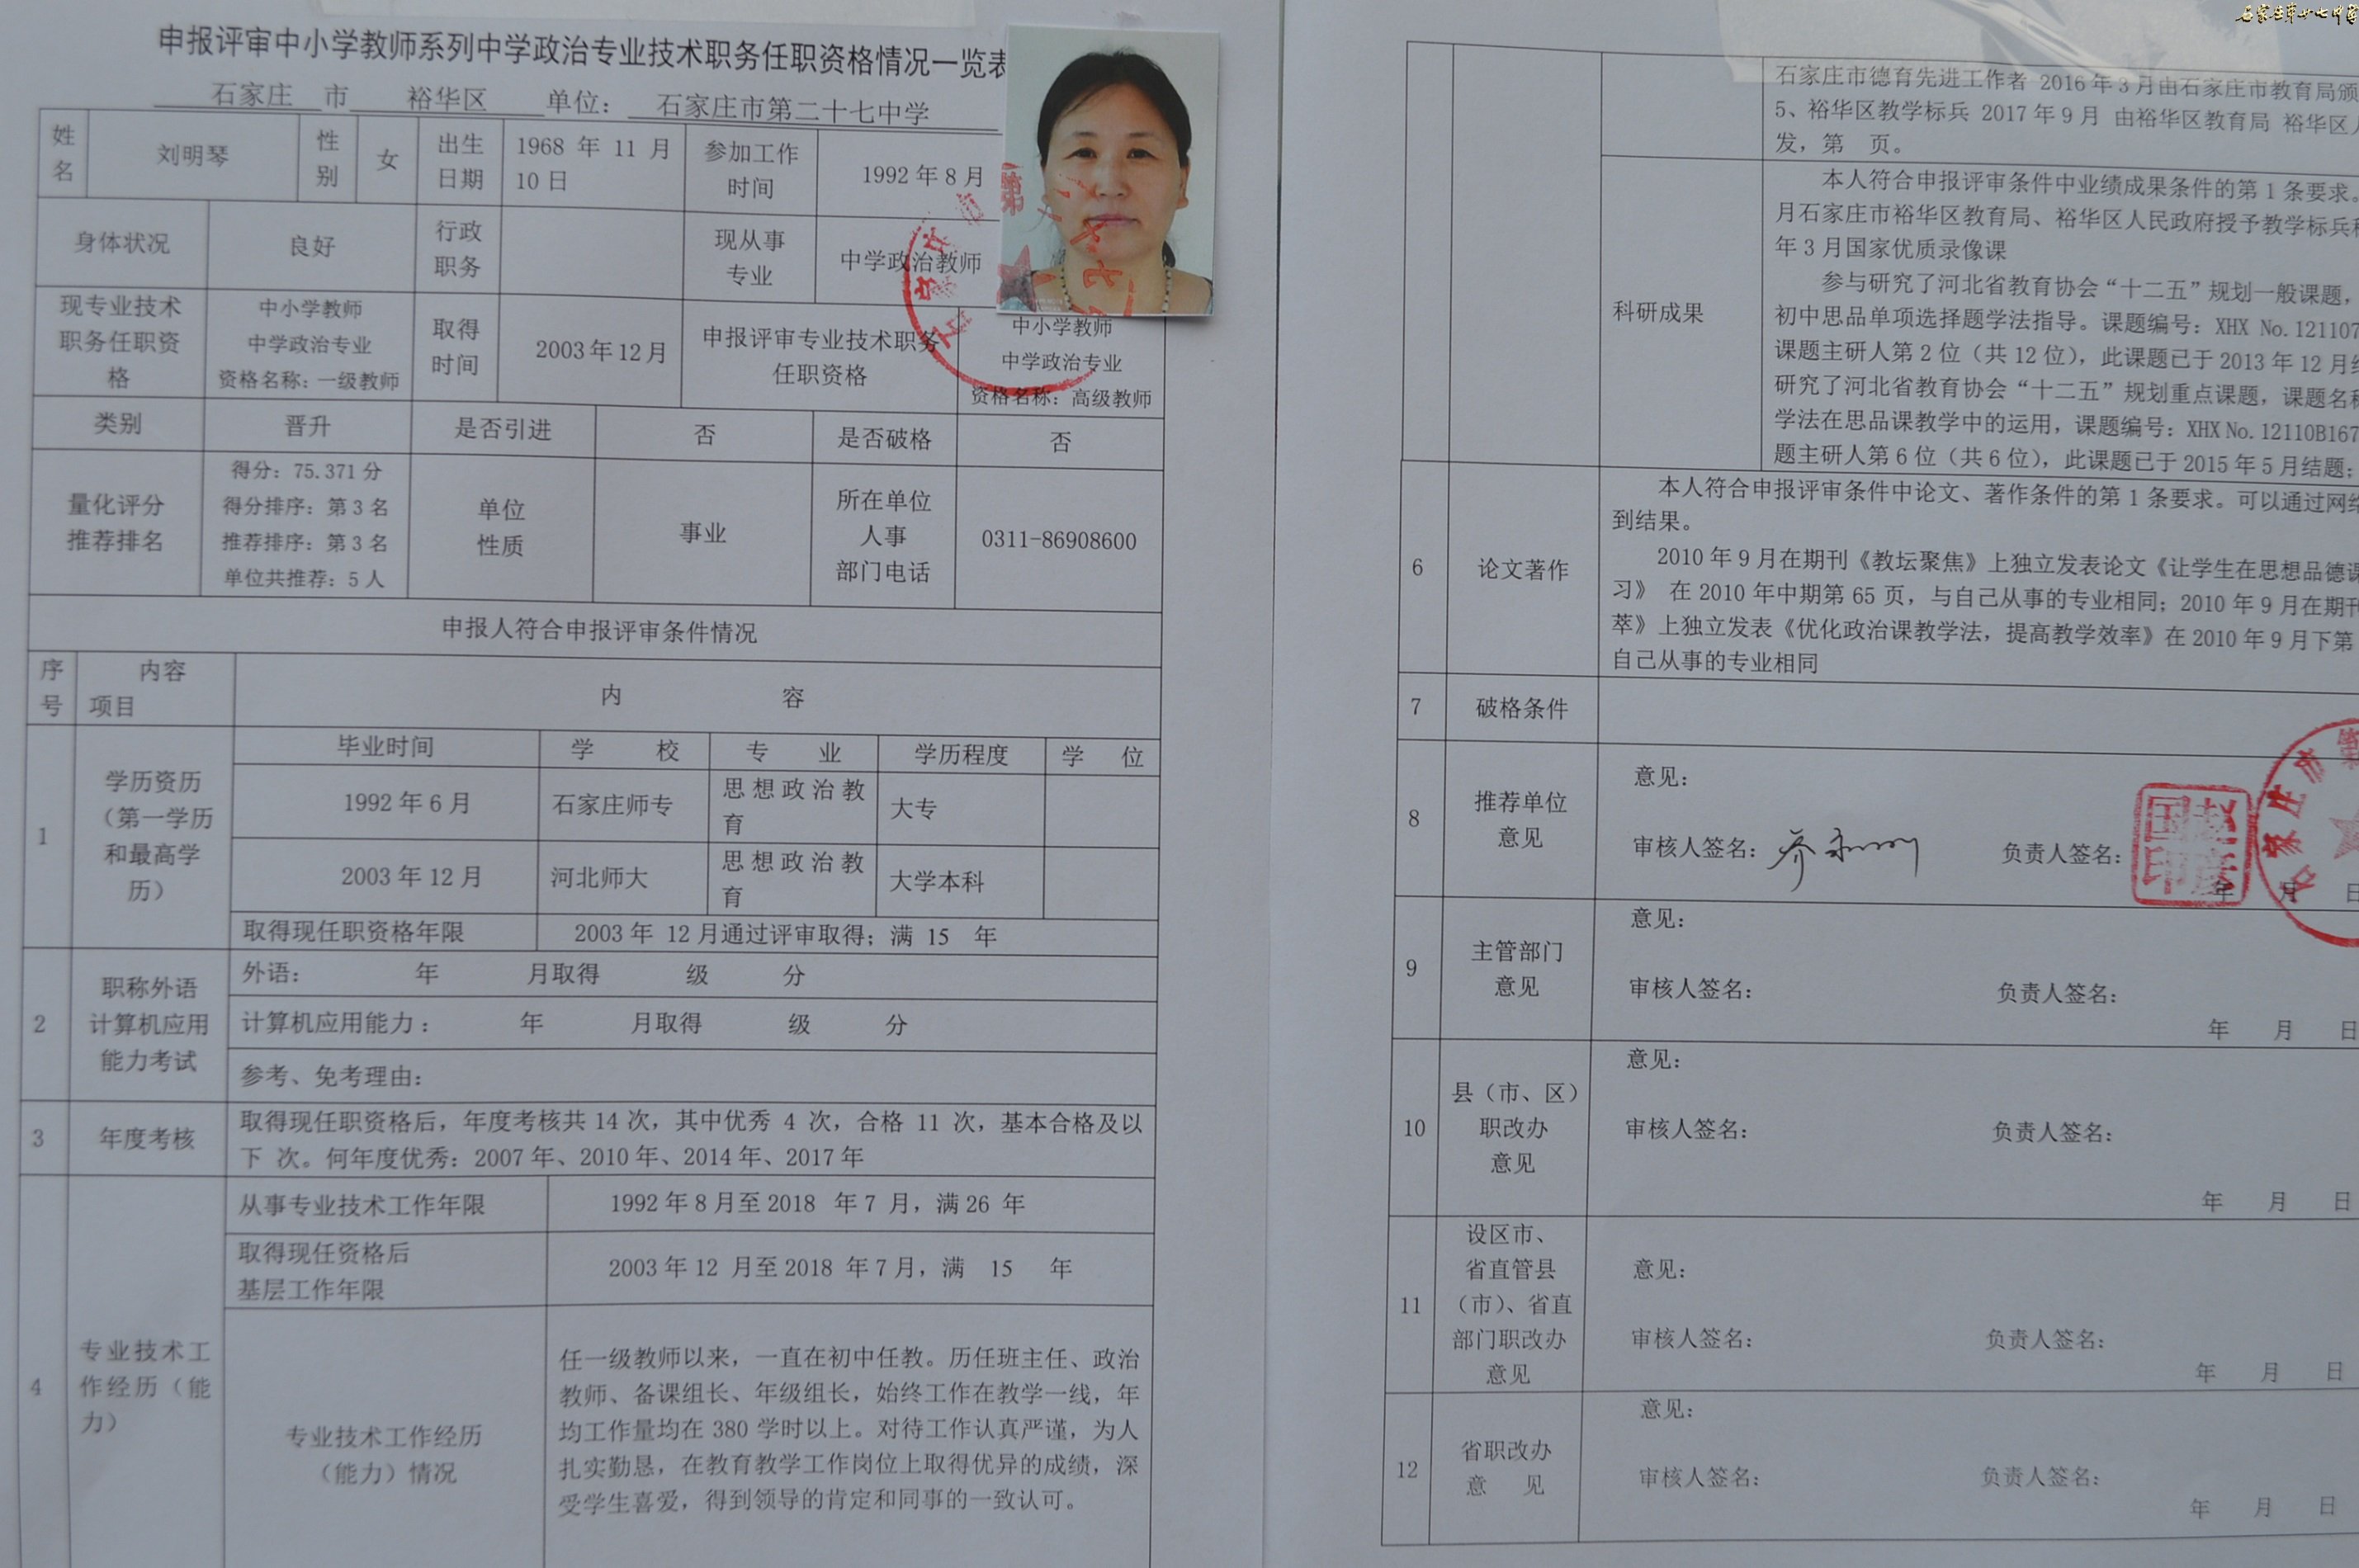 石家庄第廿七中学
申报评审中小学教师系列中学政治专业技术职务任职资格情况一览表
石家庄 市 裕华区 单位： 石家庄市第二十七中学
姓名 刘明琴 性别 女 出生日期 1968 年 11 月 10 日 参加工作时间 1992 年 8 月
身体状况 良好 行政职务 现从事专业 中学政治教师
现专业技术职务任职资格 中小学教师 中学政治专业 资格名称：一级教师 取得时间 2003 年 12 月 申报评审专业技术职务任职资格 中小学教师 中学政治专业 资格名称：高级教师
类别 晋升 是否引进 否 是否破格 否
量化评分推荐排名 得分：75.371 分 得分排序：第 3 名 推荐排序：第 3 名 单位共推荐：5 人 单位性质 事业 所在单位人事部门电话 0311-86908600
申报人符合申报评审条件情况
序号 内容 项目 内 容
1 学历资历（第一学历和最高学历）
毕业时间 学 校 专 业 学历程度 学 位
1992 年 6 月 石家庄师专 思想政治教育 大专
2003 年 12 月 河北师大 思想政治教育 大学本科
取得现任职资格年限 2003 年 12 月通过评审取得；满 15 年
2 职称外语计算机应用能力考试
外语： 年 月取得 级 分
计算机应用能力： 年 月取得 级 分
参考、免考理由：
3 年度考核
取得现任职资格后，年度考核共 14 次，其中优秀 4 次，合格 11 次，基本合格及以
下 次。何年度优秀：2007 年、2010 年、2014 年、2017 年
4 专业技术工作经历（能力）
从事专业技术工作年限 1992 年 8 月至 2018 年 7 月，满 26 年
取得现任资格后基层工作年限 2003 年 12 月至 2018 年 7 月，满 15 年
专业技术工作经历（能力）情况
任一级教师以来，一直在初中任教。历任班主任、政治
教师、备课组长、年级组长，始终工作在教学一线，年
均工作量均在 380 学时以上。对待工作认真严谨，为人
扎实勤恳，在教育教学工作岗位上取得优异的成绩，深
受学生喜爱，得到领导的肯定和同事的一致认可。
石家庄市德育先进工作者 2016 年 3 月由石家庄市教育局颁
5、裕华区教学标兵 2017 年 9 月 由裕华区教育局 裕华区人
发，第 页。
科研成果
本人符合申报评审条件中业绩成果条件的第 1 条要求。
月石家庄市裕华区教育局、裕华区人民政府授予教学标兵
年 3 月国家优质录像课
参与研究了河北省教育协会“十二五”规划一般课题，
初中思品单项选择题学法指导。课题编号：XHX No.121107
课题主研人第 2 位（共 12 位），此课题已于 2013 年 12 月
研究了河北省教育协会“十二五”规划重点课题，课题名称
学法在思品课教学中的运用，课题编号：XHX No.12110B167
题主研人第 6 位（共 6 位），此课题已于 2015 年 5 月结题；
6 论文著作
本人符合申报评审条件中论文、著作条件的第 1 条要求。可以通过网络
到结果。
2010 年 9 月在期刊《教坛聚焦》上独立发表论文《让学生在思想品德课
习》 在 2010 年中期第 65 页，与自己从事的专业相同；2010 年 9 月在期刊
萃》上独立发表《优化政治课教学法，提高教学效率》在 2010 年 9 月下第
自己从事的专业相同
7 破格条件
8 推荐单位意见
意见：
审核人签名： 负责人签名：
年 月 日
9 主管部门意见
意见：
审核人签名： 负责人签名：
年 月 日
10 县（市、区）职改办意见
意见：
审核人签名： 负责人签名：
年 月 日
11 设区市、省直管县（市）、省直部门职改办意见
意见：
审核人签名： 负责人签名：
年 月 日
12 省职改办意 见
意见：
审核人签名： 负责人签名：
年 月 日